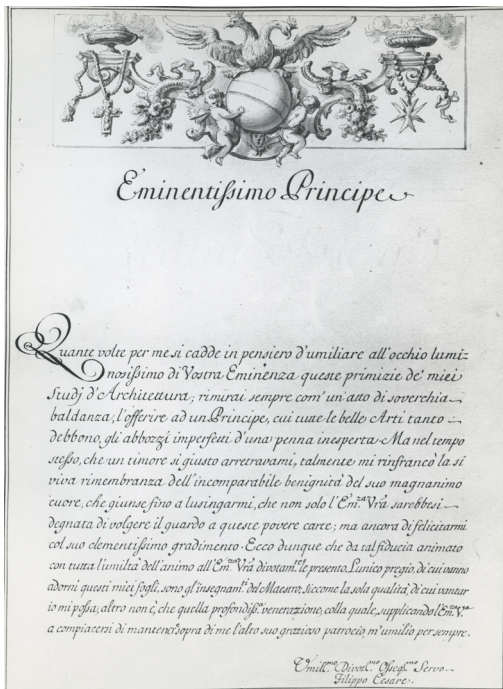 Eminentißimo Principe
Quante volte per me si cadde in pensiero d'umiliare all'occhio lumi=
nosißimo di Vostra Eminenza queste primizie de' miei
Studj d'Architettura; rimirai sempre com'un'atto di soverchia
baldanza, l'offerire ad un Principe, cui tutte le belle Arti tanto
debbono, gli abbozzi imperfetti d'una penna inesperta. Ma nel tempo
steßo, che un timore si giusto arretravami, talmente mi rinfrancò la sì
viva rimembranza dell'incomparabile benignità del suo magnanimo
cuore, che giunse fino a lusingarmi, che non solo l'Em.za Vr̃a sarebbesi
degnata di volgere il guardo a queste povere carte; ma ancora di felicitarmi
col suo clementißimo gradimento. Ecco dunque che da tal fiducia animato
con tutta l'umiltà dell'animo all'Em.za Vr̃a divotam.te le presento. L'unico pregio, di cui vanno
adorni questi miei fogli, sono gl'insegnam.ti del Maestro; siccome la sola qualità, di cui vantar
io mi poßa; altro non è, che quella profondiß.a venerazione, colla quale, supplicando l'Em.za V.ra
a compiacersi di mantener sopra di me l'alto suo grazioso patrocio, m'umilio per sempre.
Umill.mo Divot.mo Oßeq.mo Servo
Filippo Cesare.